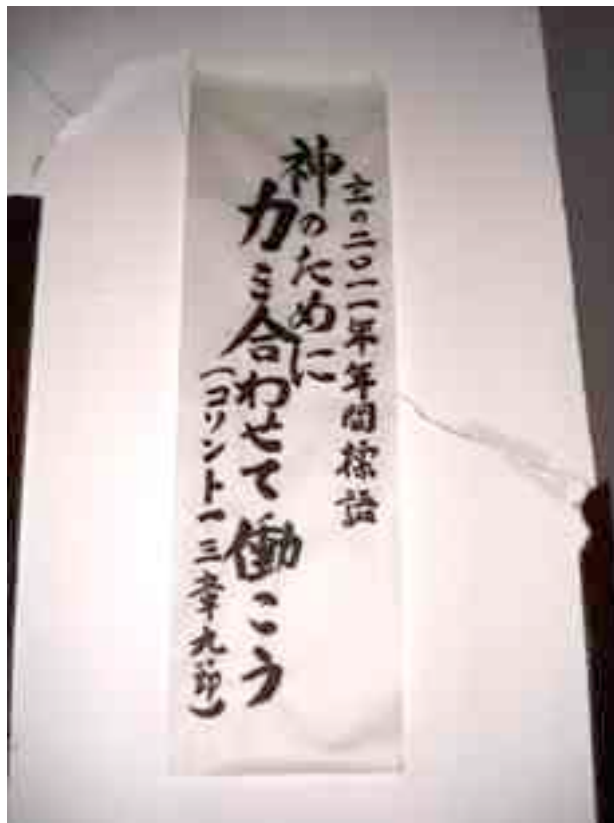 主の二〇一一年年間標語
神のために
力を合わせて働こう
(コリント一三章九節)